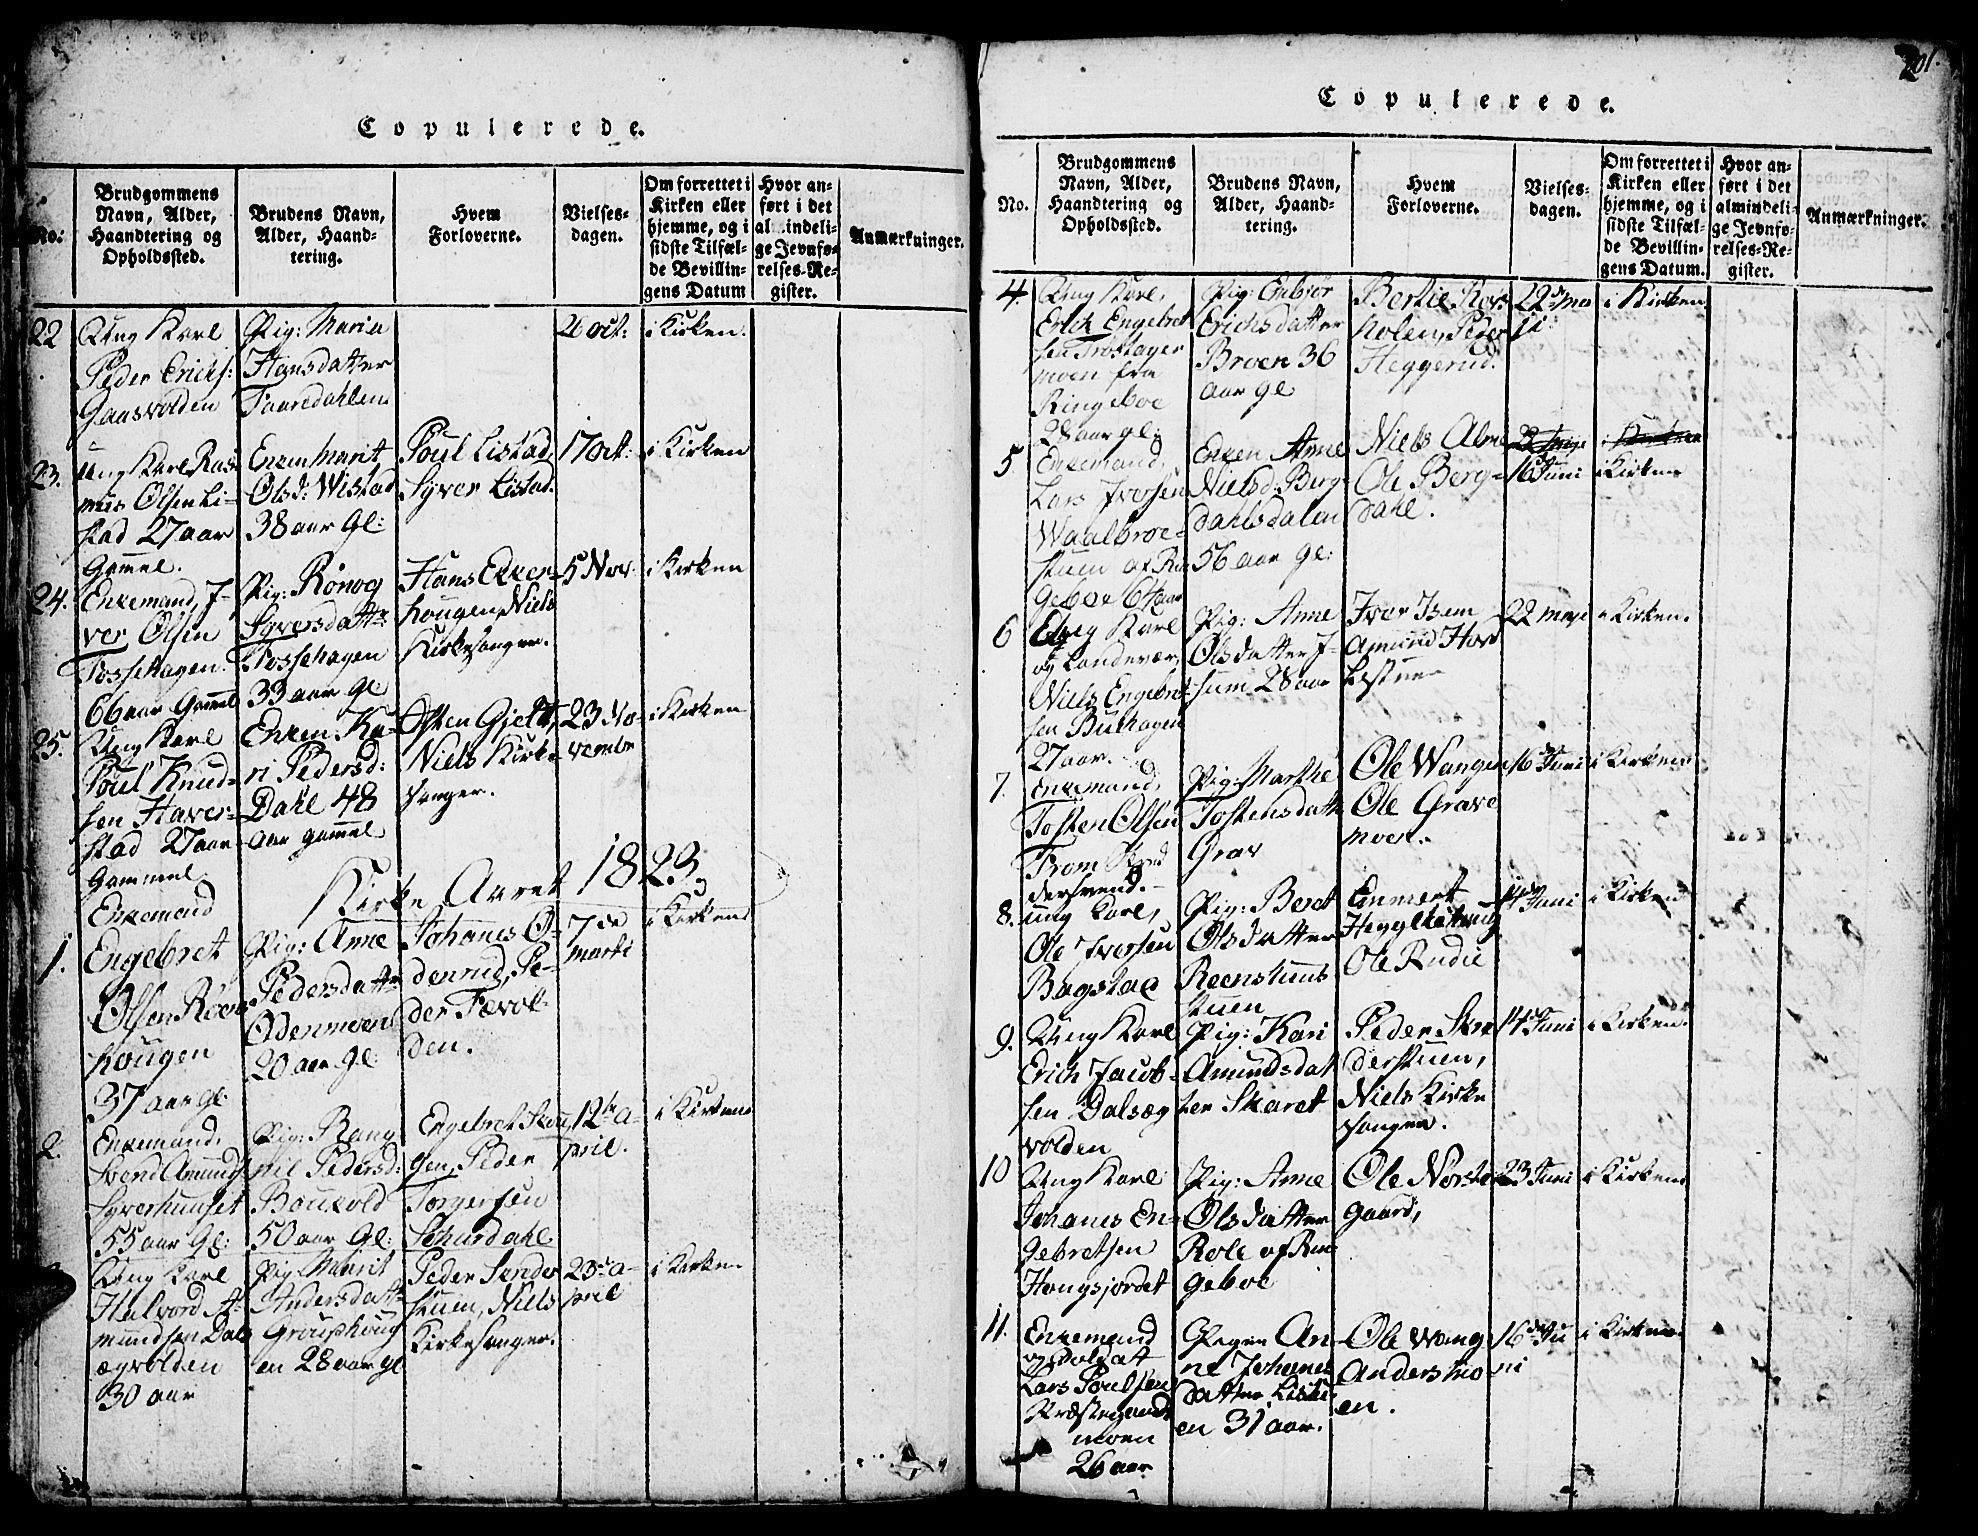 Copulerede.
No:
Brudgommens
Navn, Alder,
Haandtering og
Opholdssted.
Brudens Navn,
Alder, Haand-
tering.
Hvem
Forloverne.
Vielses-
dagen.
Om forrettet i
Kirken eller
hjemme, og i
sidste Tilfæl-
de Bevillin-
gens Datum
Hvor an-
ført i det
al indeli-
ge Jevnfø-
relses-Re-
gister.
Anmærkninger.
22
Ung Karl
Peder Erichs:
Gaasvolden
Pig: Maria
Hansdatter
Faaredahlen
26 oct:
i Kirken.
23.
Ung Karl Ras
mus Olsen Li-
stad 27 aar
Gammel.
Enken Marit
Olsd: Wistad
38 aar Gl:
Poul Listad,
Syver Listad.
17 Oct:
i Kirken
24.
Enkemand, I-
ver Olsen
Fossehagen.
66 aar Gammel
Pig: Rønog
Syversdattr
Fossehagen
33 aar Gl
Hans Ekker-
hougen, Niels
Kirkesanger.
5 Nov:
i Kirken
25.
Ung Karl
Poul Knud-
sen Haver-
stad 27 aar
Gammel
Enken. Ka-
ri Pedersd:
Dahl 48
aar gammel
Østen Gjelt,
Niels Kirke
sanger.
23 No-
vembr
i Kirken
Kirke Aaret 1823.
1.
Enkemand
Engebret
Olsen Roens
hougen
37 aar Gl.
Pig: Anne
Pedersdattr
Odenmoen
20 aar Gl.
Johanes O-
denrud, Pe-
der Fævol-
den.
7de
marti
i Kirken
2.
Enkemand.
Svend Amund
Syverhuuset
55 aar Gl:
Pig: Rang
nil Pedersd:
Boukold
50 aar Gl:
Engebret Skou
gen, Peder
Torgersen
Schurdahl
12te a-
pril.
i Kirken
Ung Karl
Halvord A-
mundsen Dals
ægvolden
30 aar
Pig: Marit
Andersdatt
Grouphoug
en 28 aar gl
Peder
stuen, Niels
Kirkesanger.
23de a-
pril
i Kirken
201.
Copulerede.
No.
Brudgommens
Navn, Alder,
Haandtering og
Opholdssted.
Brudens Navn,
Alder, Haand-
tering.
Hvem
Forloverne.
Vielses-
dagen.
Om forrettet i
Kirken eller
hjemme, og i
sidste Tilfæl-
de Bevillin-
gens Datum.
Hvor an-
ført i det
almindeli-
ge Jevnfø-
relses-Re-
gister.
Anmærkninger.
4
Ung Karl,
Erich Engebret
sen Trostager
moen fra
Ringeboe
28 aar gl:
Pig: Enbior
Erichsdatter
Broen 36
aar gl
Bertil
holen, Peder
Heggerud.
22de ma
ji
i Kirken
5
Enkemand,
Lars Iversen
Waalbroe-
stuen af Rin
geboe 64 aar
Enken Anne
Nielsd: Berg-
dahlsdalen
56 aar gl:
Niels Alme
Ole Berg-
dahl.
16 Juni
i Kirken
6
Ung Karl
og Landevær,
Niels Engebret
sen Buhagen
27 aar.
Pig: Anne
Olsdatter I-
sum 28 aar
Iver Isem
Amund
22 maji
i Kirken.
7.
Enkemand,
Tosten Olsen
From
Pig: Marthe
Tostensdatt
Grav
Ole Wangen
Ole Grave
moen.
16 Juni
i Kirken
8.
ung Karl,
Ole Iversen
Bagstad
Pig: Beret
Olsdatter
Reenstuus
stuen
Emmert
Ole Rudie
14 Juni
i Kirken
9.
Ung Karl
Erich Jacob-
sen Dalsæg
volden
Pig: Kari
Amundsdat
ter Skaret
Peder Skre
derstuen,
Niels Kirke
sanger.
14 Juni
i Kirken.
10
Ung Karl
Johanes En-
gebretsen
Haugsjordet
Pig: Anne
Olsdatter
Role af Rin
geboe
Ole Norste
gaard,
23 Juni
i Kirken
11.
Enkemand
og Soldat
Lars Poulsen
Præstegaards
moen
26 aar
Pigen An-
ne Johanes
datter
en 31 aar.
Ole Wang
Andersmo
en.
16de Ju
ni
i Kirken.